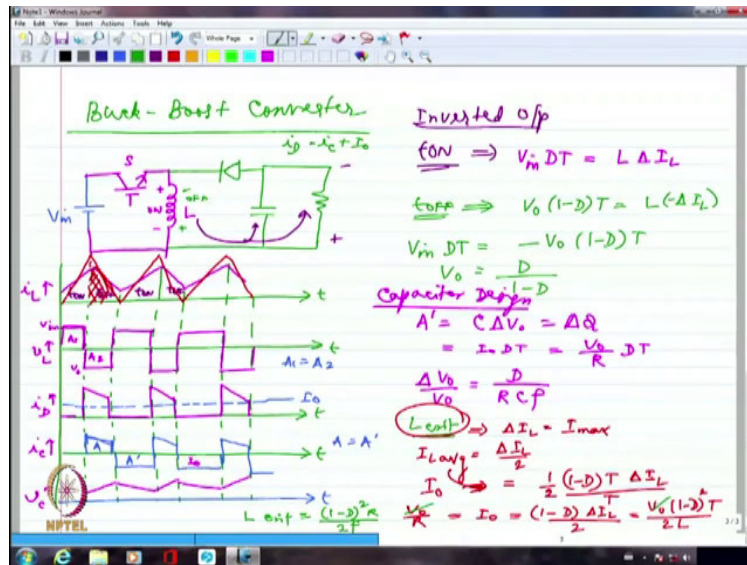 Note1 - Windows Journal
File Edit View Insert Actions Tools Help
Whole Page
Buck-Boost Converter
i_D = i_C + I_0
S
T
V_in
+
ON
-
L
-
OFF
+
-
+
i_L ↑
tON
tON
tON
→ t
V_in
v_L ↑
A_1
A_2
V_0
→ t
A_1 = A_2
i_D ↑
I_0
→ t
i_C ↑
A
A'
I_0
→ t
A = A'
v_C ↑
→ t
NPTEL
L crit = (1-D)^2 R / 2f
Inverted O/p
tON ⇒ V_in DT = L Δ I_L
tOFF ⇒ V_0 (1-D) T = L (-Δ I_L)
V_in DT = - V_0 (1-D) T
V_0 = D / 1-D
Capacitor Design
A' = C Δ V_0 = Δ Q
= I_0 DT = V_0 / R DT
Δ V_0 / V_0 = D / R C f
L crit ⇒ Δ I_L = I_max
I_L avg = Δ I_L / 2
I_0 ⇒ = 1/2 (1-D) T Δ I_L / T
V_0 / R = I_0 = (1-D) Δ I_L / 2 = V_0 (1-D)^2 T / 2L